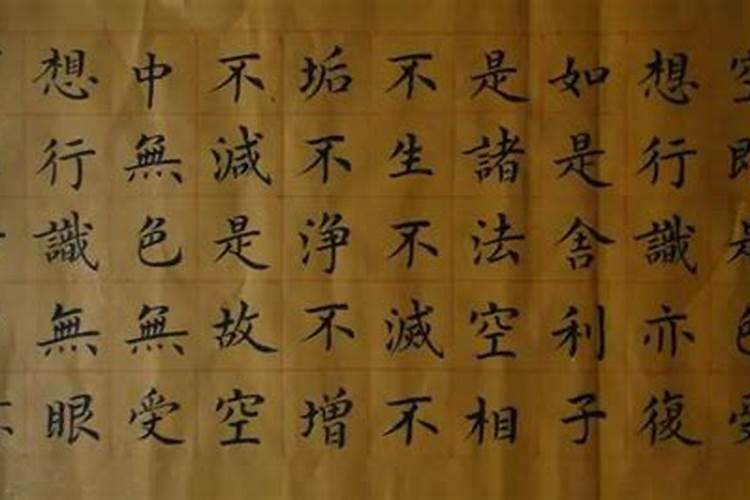 想行識亦復
如是舍利子
是諸法空相
不生不滅不
垢不浄不増
不減是故空
中無色無受
想行識無眼